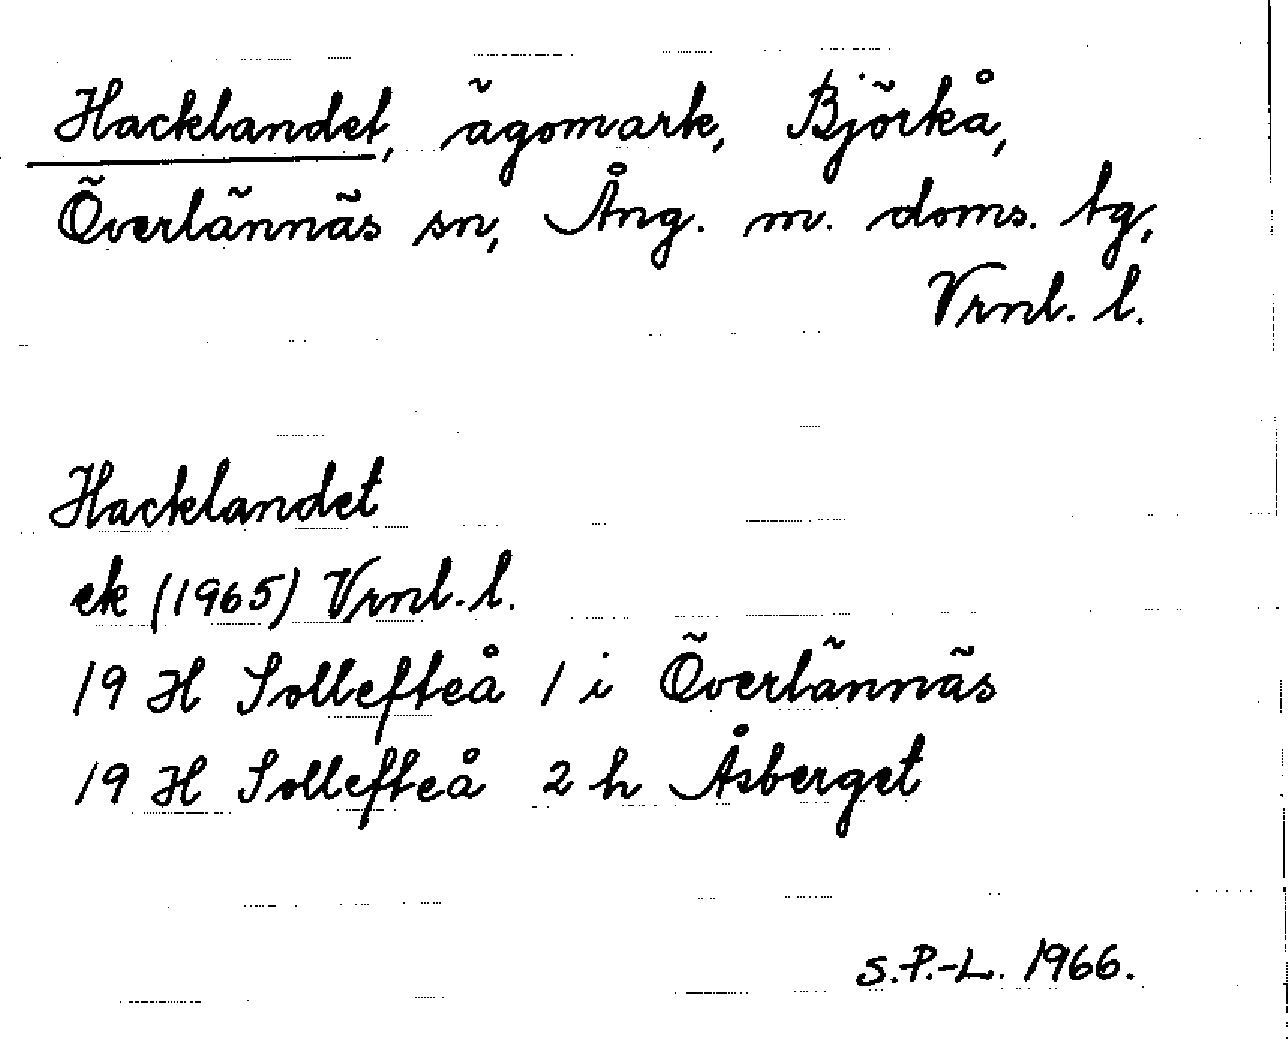 Hacklandet, ägomark, Björkå,
Överlännäs sn, Ång. m. doms. tg,
Vrnl. l.
Hacklandet
ek (1965) Vrnl. l.
19 H Sollefteå 1 i Överlännäs
19 H Sollefteå 2 h Åsberget
S.P.-L. 1966.